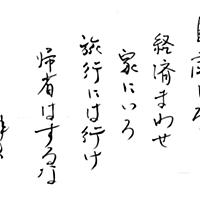 経済まわせ
家にいろ
旅行には行け
帰省はするな